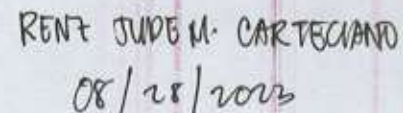 RENZ JUDE M. CARTECIANO
08/28/2023